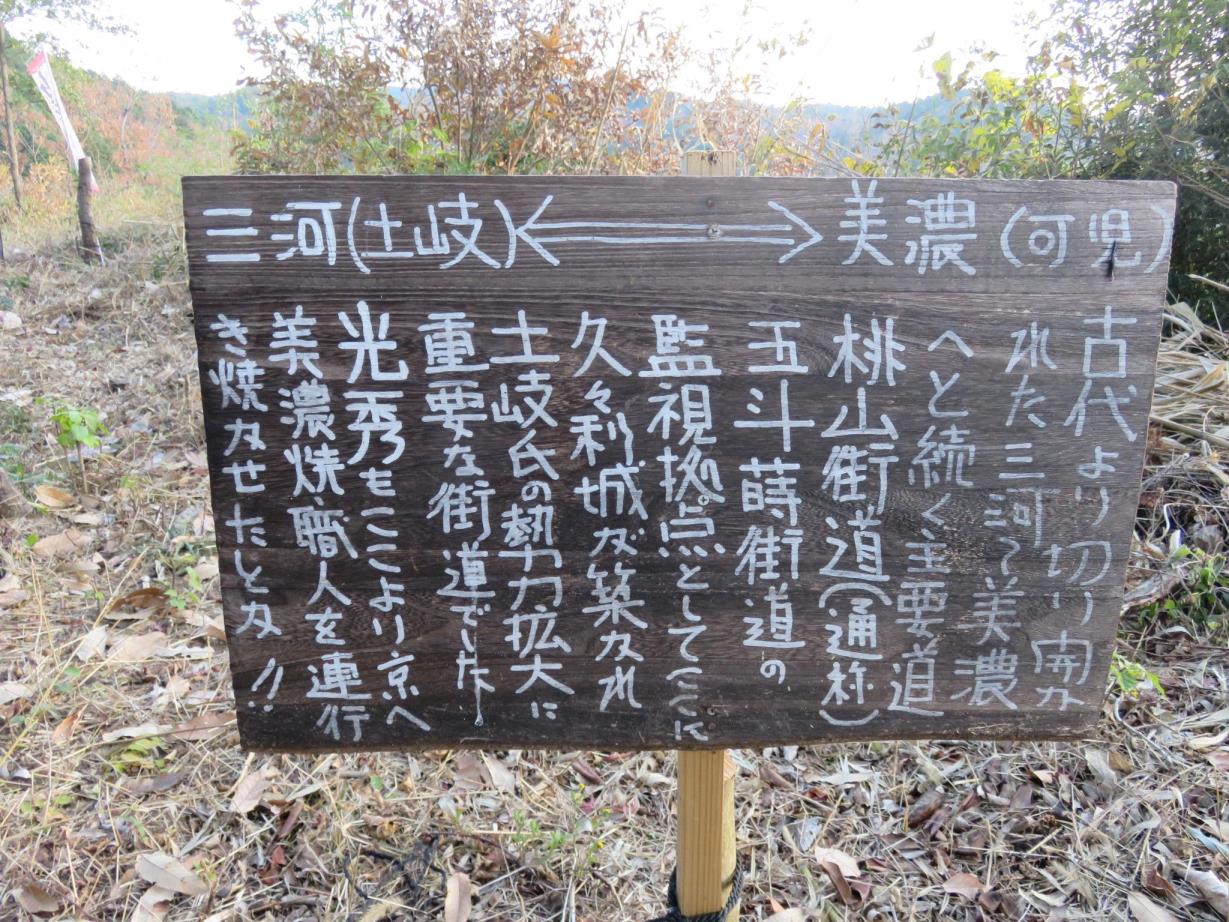 三河(土岐)⟸⟹美濃(可児)
古代より切り開か
れた三河~美濃
へと続く主要道
桃山街道(通称)
五斗蒔街道の
監視拠点としてここに
久々利城が築かれ
土岐氏の勢力拡大に
重要な街道でした
光秀もここより京へ
美濃焼職人を連行
き焼かせたとか!!